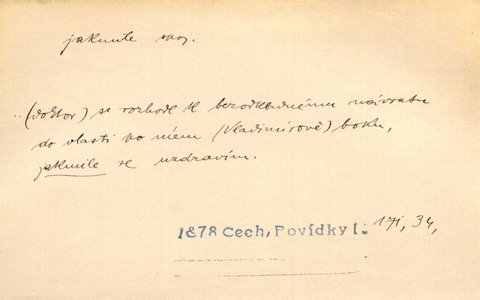 jakmile spoj.
..(doktor) se rozhodl k bezodkladnému návratu
do vlasti po mém (Vladimírově) boku,
jakmile se uzdravím.
1878 Čech, Povídky I. 171, 34,